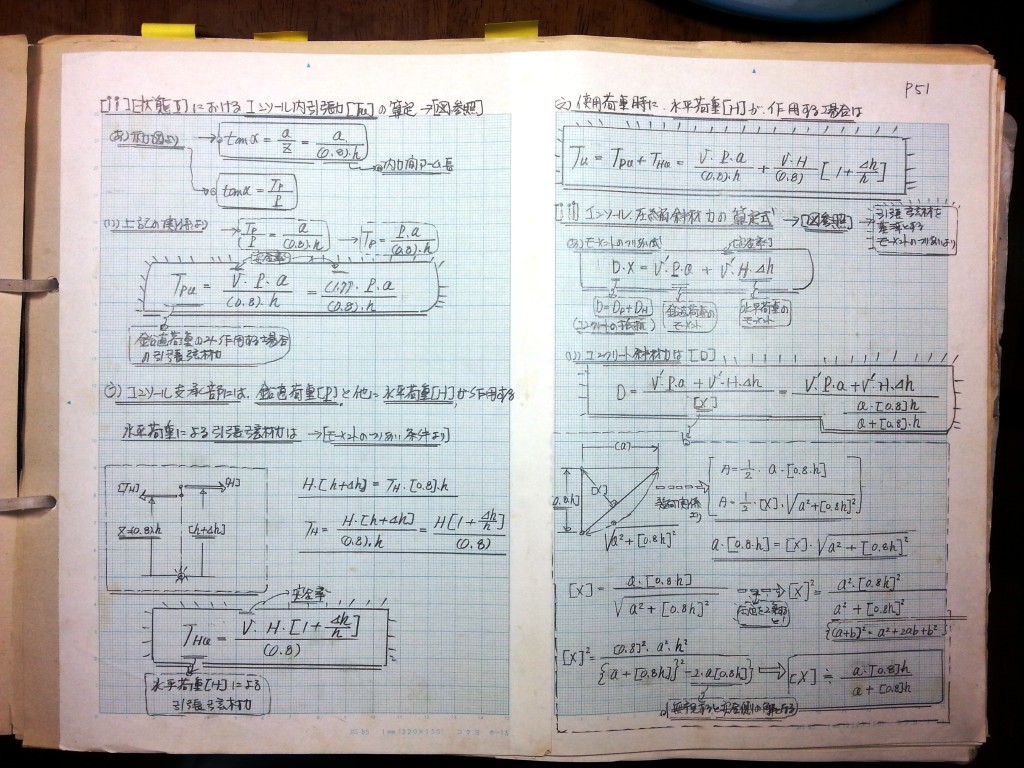 [ii] [状態Ⅱ]における コンソール内引張力[Tu]の算定→[図参照]
(あ) 示力図より → tanα = a/z = a/(0.8)·h
内力間アーム長
tanα = Tp/P
(い) 上記の関係より → Tp/P = a/(0.8)·h → Tp = P·a/(0.8)·h
安全率
Tpu = V·P·a/(0.8)·h = (1.77)·P·a/(0.8)·h
鉛直荷重のみ作用する場合
の引張弦材力
(う) コンソール支承部には、鉛直荷重[P]と他に水平荷重[H]が作用する
水平荷重による引張弦材力は →[モーメントのつり合い条件より]
[TH] [H]
z=(0.8)·h [h+Δh]
H·[h+Δh] = TH·[0.8]·h
TH = H·[h+Δh]/(0.8)·h = H[1+Δh/h]/(0.8)
安全率
THu = V·H·[1+Δh/h]/(0.8)
水平荷重[H]による
引張弦材力
P51
使用荷重時に、水平荷重[H]が作用する場合は
Tu = Tpu + THu = V·P·a/(0.8)·h + V·H/(0.8) [1+Δh/h]
コンソール圧縮斜材力の算定式 →[図参照] →
引張弦材を
基準とする
モーメントのつり合いより
(あ) モーメントのつり合い式
安全率
D·X = V'·P·a + V'·H·Δh
D=Dp+DH
鉛直荷重の
モーメント
水平荷重の
モーメント
(い) コンクリート斜材力は[D]
D = V'·P·a+V'·H·Δh/[X] = V'·P·a+V'·H·Δh/(a·[0.8]·h/a+[0.8]·h)
(a)
0.8h
[X]
√a²+[0.8h]²
より
A=1/2·a·[0.8·h]
A=1/2·[X]·√a²+[0.8h]²
a·[0.8h] = [X]·√a²+[0.8h]²
[X] = a·[0.8·h]/√a²+[0.8h]² → [X]² = a²·[0.8h]²/a²+[0.8h]²
{(a+b)² = a²+2ab+b²}
[X]² = [0.8]²·a²·h²/{{a+[0.8h]}²-2·a[0.8h]} ⇒ [X] ≒ a·[0.8]h/a+[0.8]h